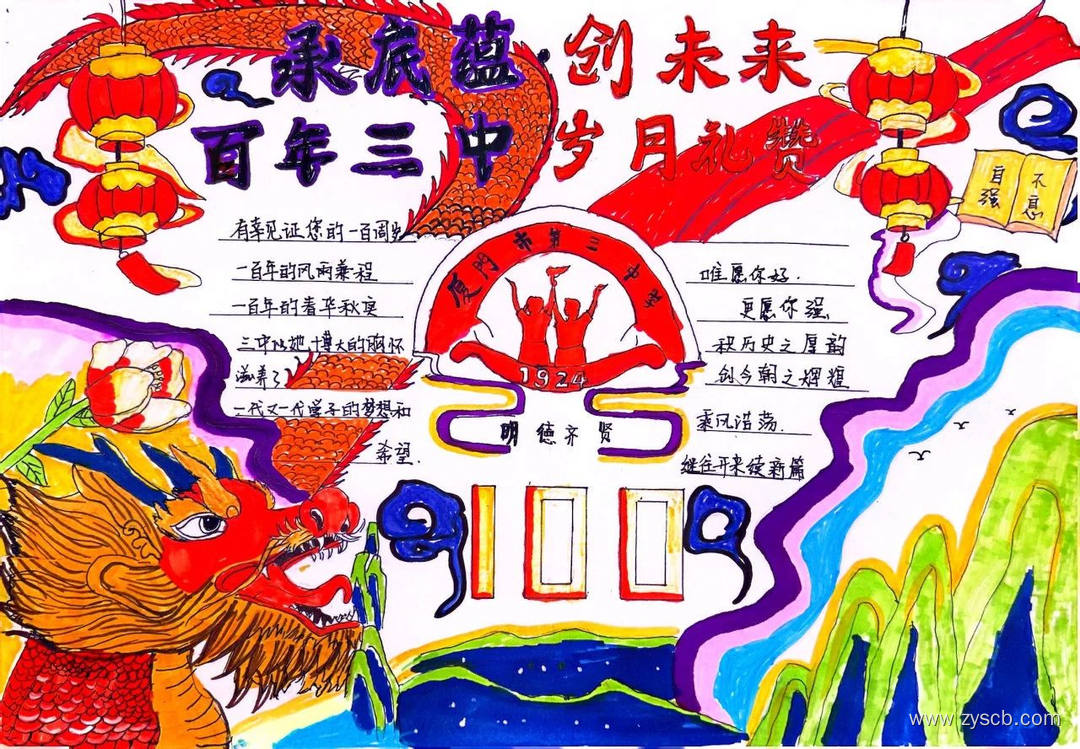 承底蕴·创未来
百年三中 岁月礼赞
自强
不息
有幸见证您的一百周岁
一百年的风雨兼程
一百年的春华秋实
三中以她博大的胸怀
滋养了
一代又一代学子的梦想和
希望.
厦門市第三中学
1924
明德齐贤
唯愿你好.
更愿你强
积历史之厚韵
创今朝之辉煌
乘风浩荡.
继往开来续新篇
100
www.zyscb.com